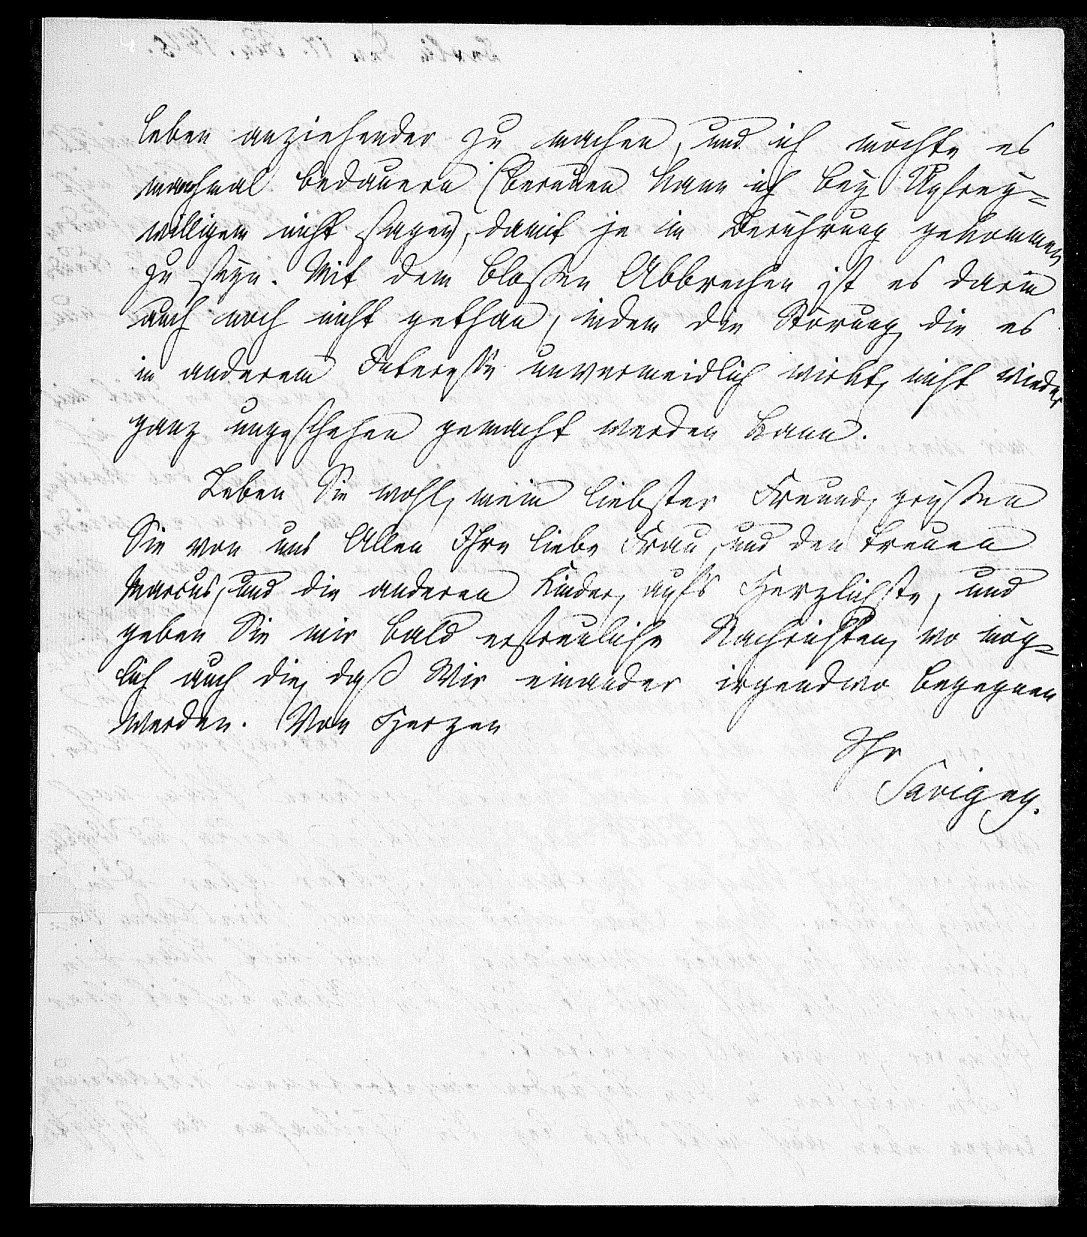 leben anziehender zu machen, und ich möchte es
manchmal bedauern (bereuen kann ich bey Unfrey-
willigem nicht sagen), damit je in Berührung gekommen
zu seyn. Mit dem bloßen Abbrechen ist es darin
auch noch nicht gethan, indem die Störung die es
in anderem Interesse unvermeidlich wirkt, nicht wieder
ganz ungeschehen gemacht werden kann.
Leben Sie wohl, mein liebster Freund, grüßen
Sie von uns Allen Ihre liebe Frau, und den treuen
Marcus, und die anderen Kinder, aufs Herzlichste, und
geben Sie mir bald erfreuliche Nachrichten, wo mög-
lich auch die, daß Wir einander irgendwo begegnen
werden. Von Herzen
Ihr
Savigny.